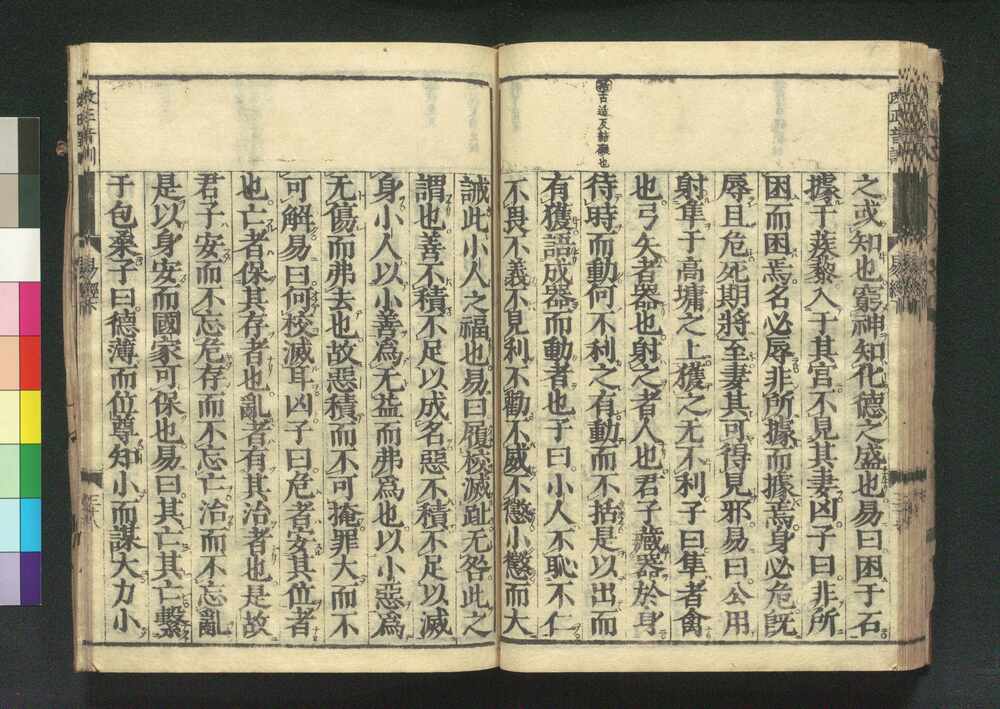 之或知也窮神知化德之盛也易曰困于石
據于蒺藜入于其宮不見其妻凶子曰非所
困而困焉名必辱非所據而據焉身必危旣
辱且危死期將至妻其可得見邪易曰公用
射隼于高墉之上獲之无不利子曰隼者禽
也弓矢者器也射之者人也君子藏器於身
待時而動何不利之有動而不括是以出而
有獲語成器而動者也子曰小人不恥不仁
不畏不義不見利不勸不威不懲小懲而大
括古活反結礙也
誡此小人之福也易曰履校滅趾无咎此之
謂也善不積不足以成名惡不積不足以滅
身小人以小善爲无益而弗爲也以小惡爲
无傷而弗去也故惡積而不可掩罪大而不
可解易曰何校滅耳凶子曰危者安其位者
也亡者保其存者也亂者有其治者也是故
君子安而不忘危存而不忘亡治而不忘亂
是以身安而國家可保也易曰其亡其亡繫
于包桑子曰德薄而位尊知小而謀大力小
易經